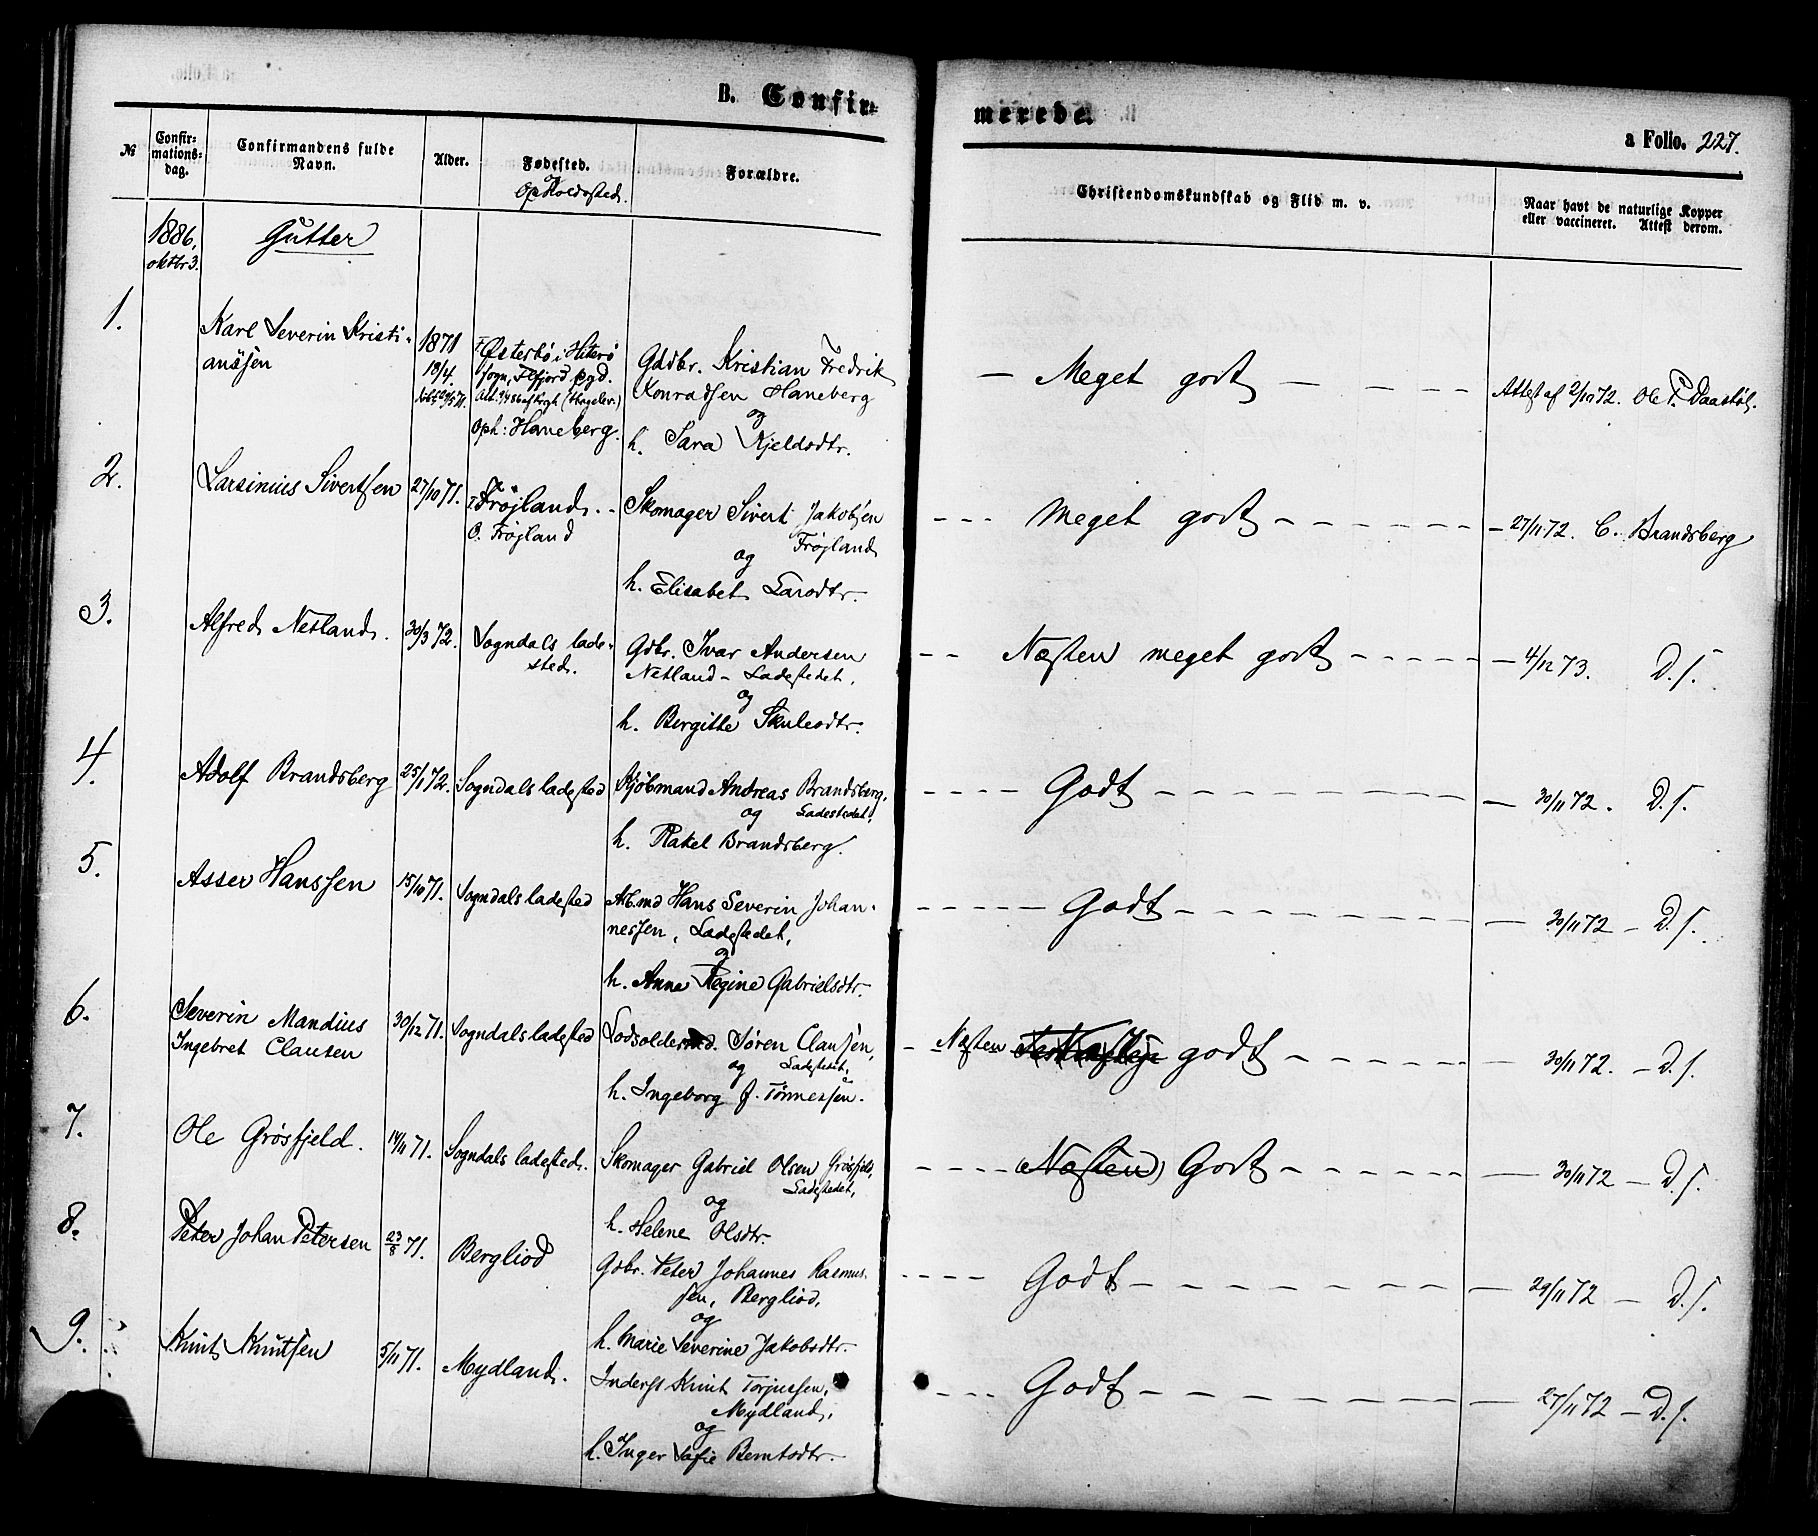 B. Confir-
merede.
a Folio. 227.
№
Confir-
mations-
dag.
Confirmandens fulde
Navn.
Alder.
Fødested.
og
Opholdssted.
Forældre.
Christendomskundskab og Flid m. v.
Naar havt de naturlige Kopper
eller vaccineret. Attest derom.
1886,
oktbr 3.
Gutter
1.
Karl Severin Kristi-
anssen
1871
13/4.
Østerbø i Hiterø
sogn, Flefjord pgd.
Oph: Haneberg.
Gdbr. Kristian Fredrik
Konradsen Haneberg
og
h. Sara Kjeldsdtr.
— Meget godt — — — —
Attest af 2/11 72. Ole T. Daastøl.
2.
Larsinius Sivertsen
27/10 71.
F. Frøjland. -
O. Frøjland
Skomager Sivert Jakobsen
Frøjland
og
h. Elisabet Larsdtr.
- - - Meget godt - - - - - -
- 27/11 72. C. Brandsberg
3.
Alfred Netland.
30/3 72.
Sogndals lade-
sted.
Gdbr. Ivar Andersen
Netland - Ladestedet,
og
h. Bergitte Skulesdtr.
- - Næsten meget godt - - - - -
- 4/12 73. D. S.
4.
Adolf Brandsberg
25/1 72.
Sogndals ladested
Kjøbmand Andreas Brandsberg,
og Ladestedet,
h. Rakel Brandsberg.
- - - - Godt - - - - - - -
- 30/11 72. D. S.
5.
Asser Hanssen
15/10 71.
Sogndals ladested
Arb.md Hans Severin Johan-
nessen, Ladestedet,
og
h. Anne Regine Gabrielsdtr.
- - - - - Godt - - - - - - -
- 30/11 72 - D. S.
6.
Severin Mandius
Ingebret Clausen
30/12 71.
Sogndals ladested
Lodsoldermd. Søren Clausen,
og Ladestedet,
h. Ingeborg J. Tønnessen.
- Næsten godt - - - - -
30/11 72. - D. S.
7.
Ole Grøsfjeld.
14/11 71.
Sogndals ladested.
Skomager Gabriel Olsen Grøsfjeld,
Ladestedet,
og
h. Helene Olsdtr.
- - - - (Næsten) Godt - - - - -
- 30/11 72 - D. S.
8.
Peter Johan Petersen
23/8 71.
Bergliod
Gdbr. Peter Johannes Rasmus-
sen, Bergliod,
og
h. Marie Severine Jakobsdtr.
- - - - Godt - - - - - - -
- 29/11 72 - D. S.
9.
Knut Knutsen
5/11 71.
Mydland.
Inderst Knut Torjussen,
Mydland,
og
h. Inger Sofie Berntsdtr.
- - - Godt - - - - - - -
- 27/11 72 - D. S.